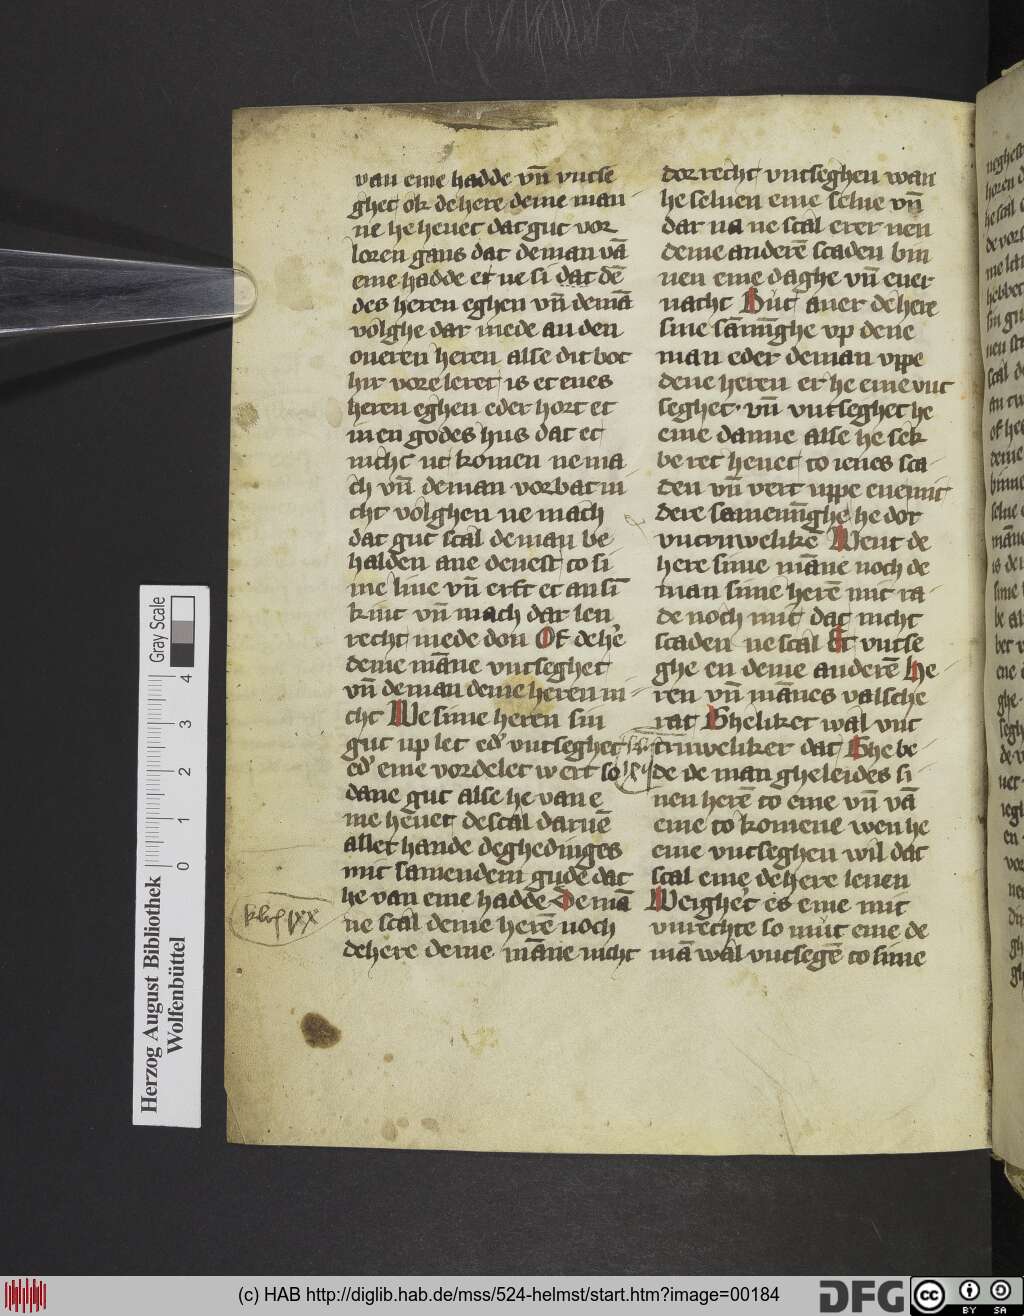 van eme hadde vn̄ vntse
ghet ok de here deme man
ne he heuet dat gut vor
loren gans dat de man vā
eme hadde et ne si dat dē
des heren eghen vn̄ de mā
volghe dar mede an den
oueren heren alse dit bot
hir vore leret is et eues
heren eghen eder hort et
in en godes hus dat et
nicht ut komen ne ma
ch vn̄ de man vorbat ni
cht volghen ne mach
dat gut scal de man be
halden ane denest to si
me liue vn̄ erft et an sī
kint vn̄ mach dar len
recht mede don Of de hē
deme māne vntseghet
vn̄ de man deme heren ni
cht We sime heren sin
gut up let ed' vntseghet
ed' eme vordelet wert so
dane gut alse he van e
me heuet de scal daruē
allet hande deghedinges
mit samendem gude dat
he van eme hadde De mā
ne scal deme herē noch
de here deme māne nicht
dor recht vntseghen wan
he seluen eme selue vn̄
dar na ne scal erer nen
deme anderē scaden bin
nen eme daghe vn̄ ener
nacht Dut auer de here
sine sāmīghe vp dene
man eder de man vppe
dene heren er he eme vnt
seghet vn̄ vntseghet he
eme danne alse he sek
beret heuet to ienes sca
den vn̄ vert uppe ene mit
dere samenīghe he dot
vntruwelikē Went de
here sime māne noch de
man sime herē mit ra
de noch mit dat nicht
scaden ne scal Et vntse
ghe en deme anderē He
ren vn̄ mānes valsche
rat Gheliket wal vnt
truweliker dat Ghe be
de de man gheleides si
nen herē to eme vn̄ vā
eme to komene wen he
eme vntseghen wil dat
scal eme de here leuen
Weighet es eme mit
vnrechte so mut eme de
mā wal vntsegē to sime
Herzog August Bibliothek
Wolfenbüttel
Gray Scale
0 1 2 3 4
(c) HAB http://diglib.hab.de/mss/524-helmst/start.htm?image=00184
DFG
cc
BY SA